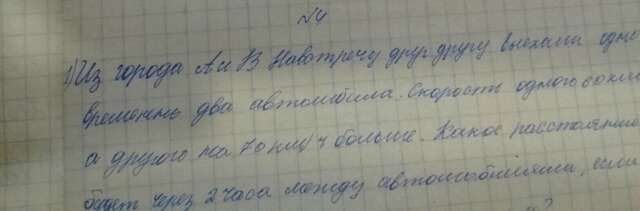 №4
1) Из города А и В навстречу друг другу выехали одно
временнь два автомобиля. Скорость одного 50 км
а другого на 70 км/ч больше. Какое расстояние
будет через 2 часа между автомобилями, если